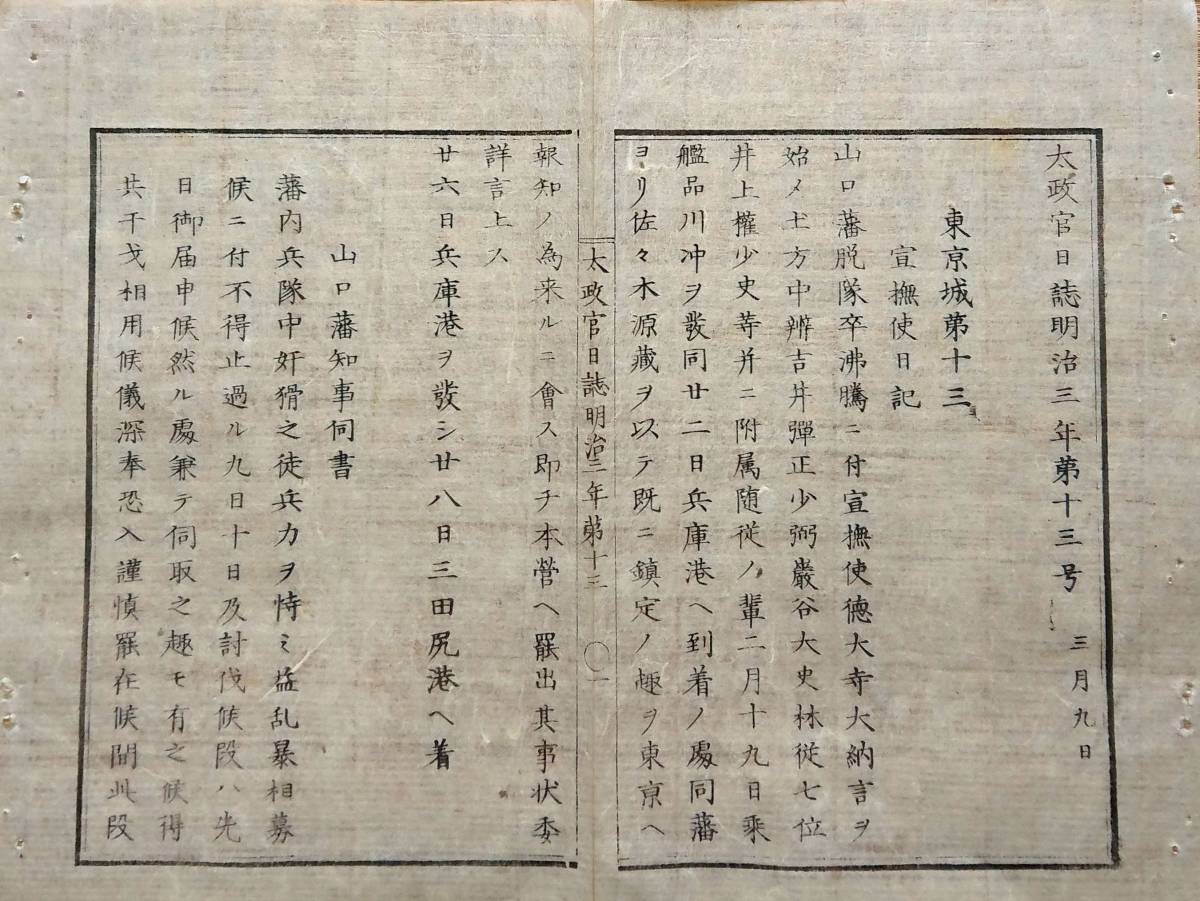 太政官日誌明治三年第十三号 三月九日
東京城第十三
宣撫使日記
山口藩脱隊卒沸騰ニ付宣撫使德大寺大納言ヲ
始メ土方中辨吉井彈正少弼巖谷大史林従七位
井上權少史等并ニ附属随従ノ輩二月十九日乘
艦品川冲ヲ發同廿二日兵庫港ヘ到着ノ處同藩
ヨリ佐々木源藏ヲ以テ既ニ鎮定ノ趣ヲ東京ヘ
太政官日誌明治三年第十三 〇一
報知ノ為来ルニ會ス即チ本營ヘ罷出其事状委
詳言上ス
廿六日兵庫港ヲ發シ廿八日三田尻港ヘ着
山口藩知事伺書
藩内兵隊中奸猾之徒兵力ヲ恃ミ益乱暴相募
候ニ付不得止過ル九日十日及討伐候段ハ先
日御届申候然ル處兼テ伺取之趣モ有之候得
共干戈相用候儀深奉恐入謹慎罷在候間此段